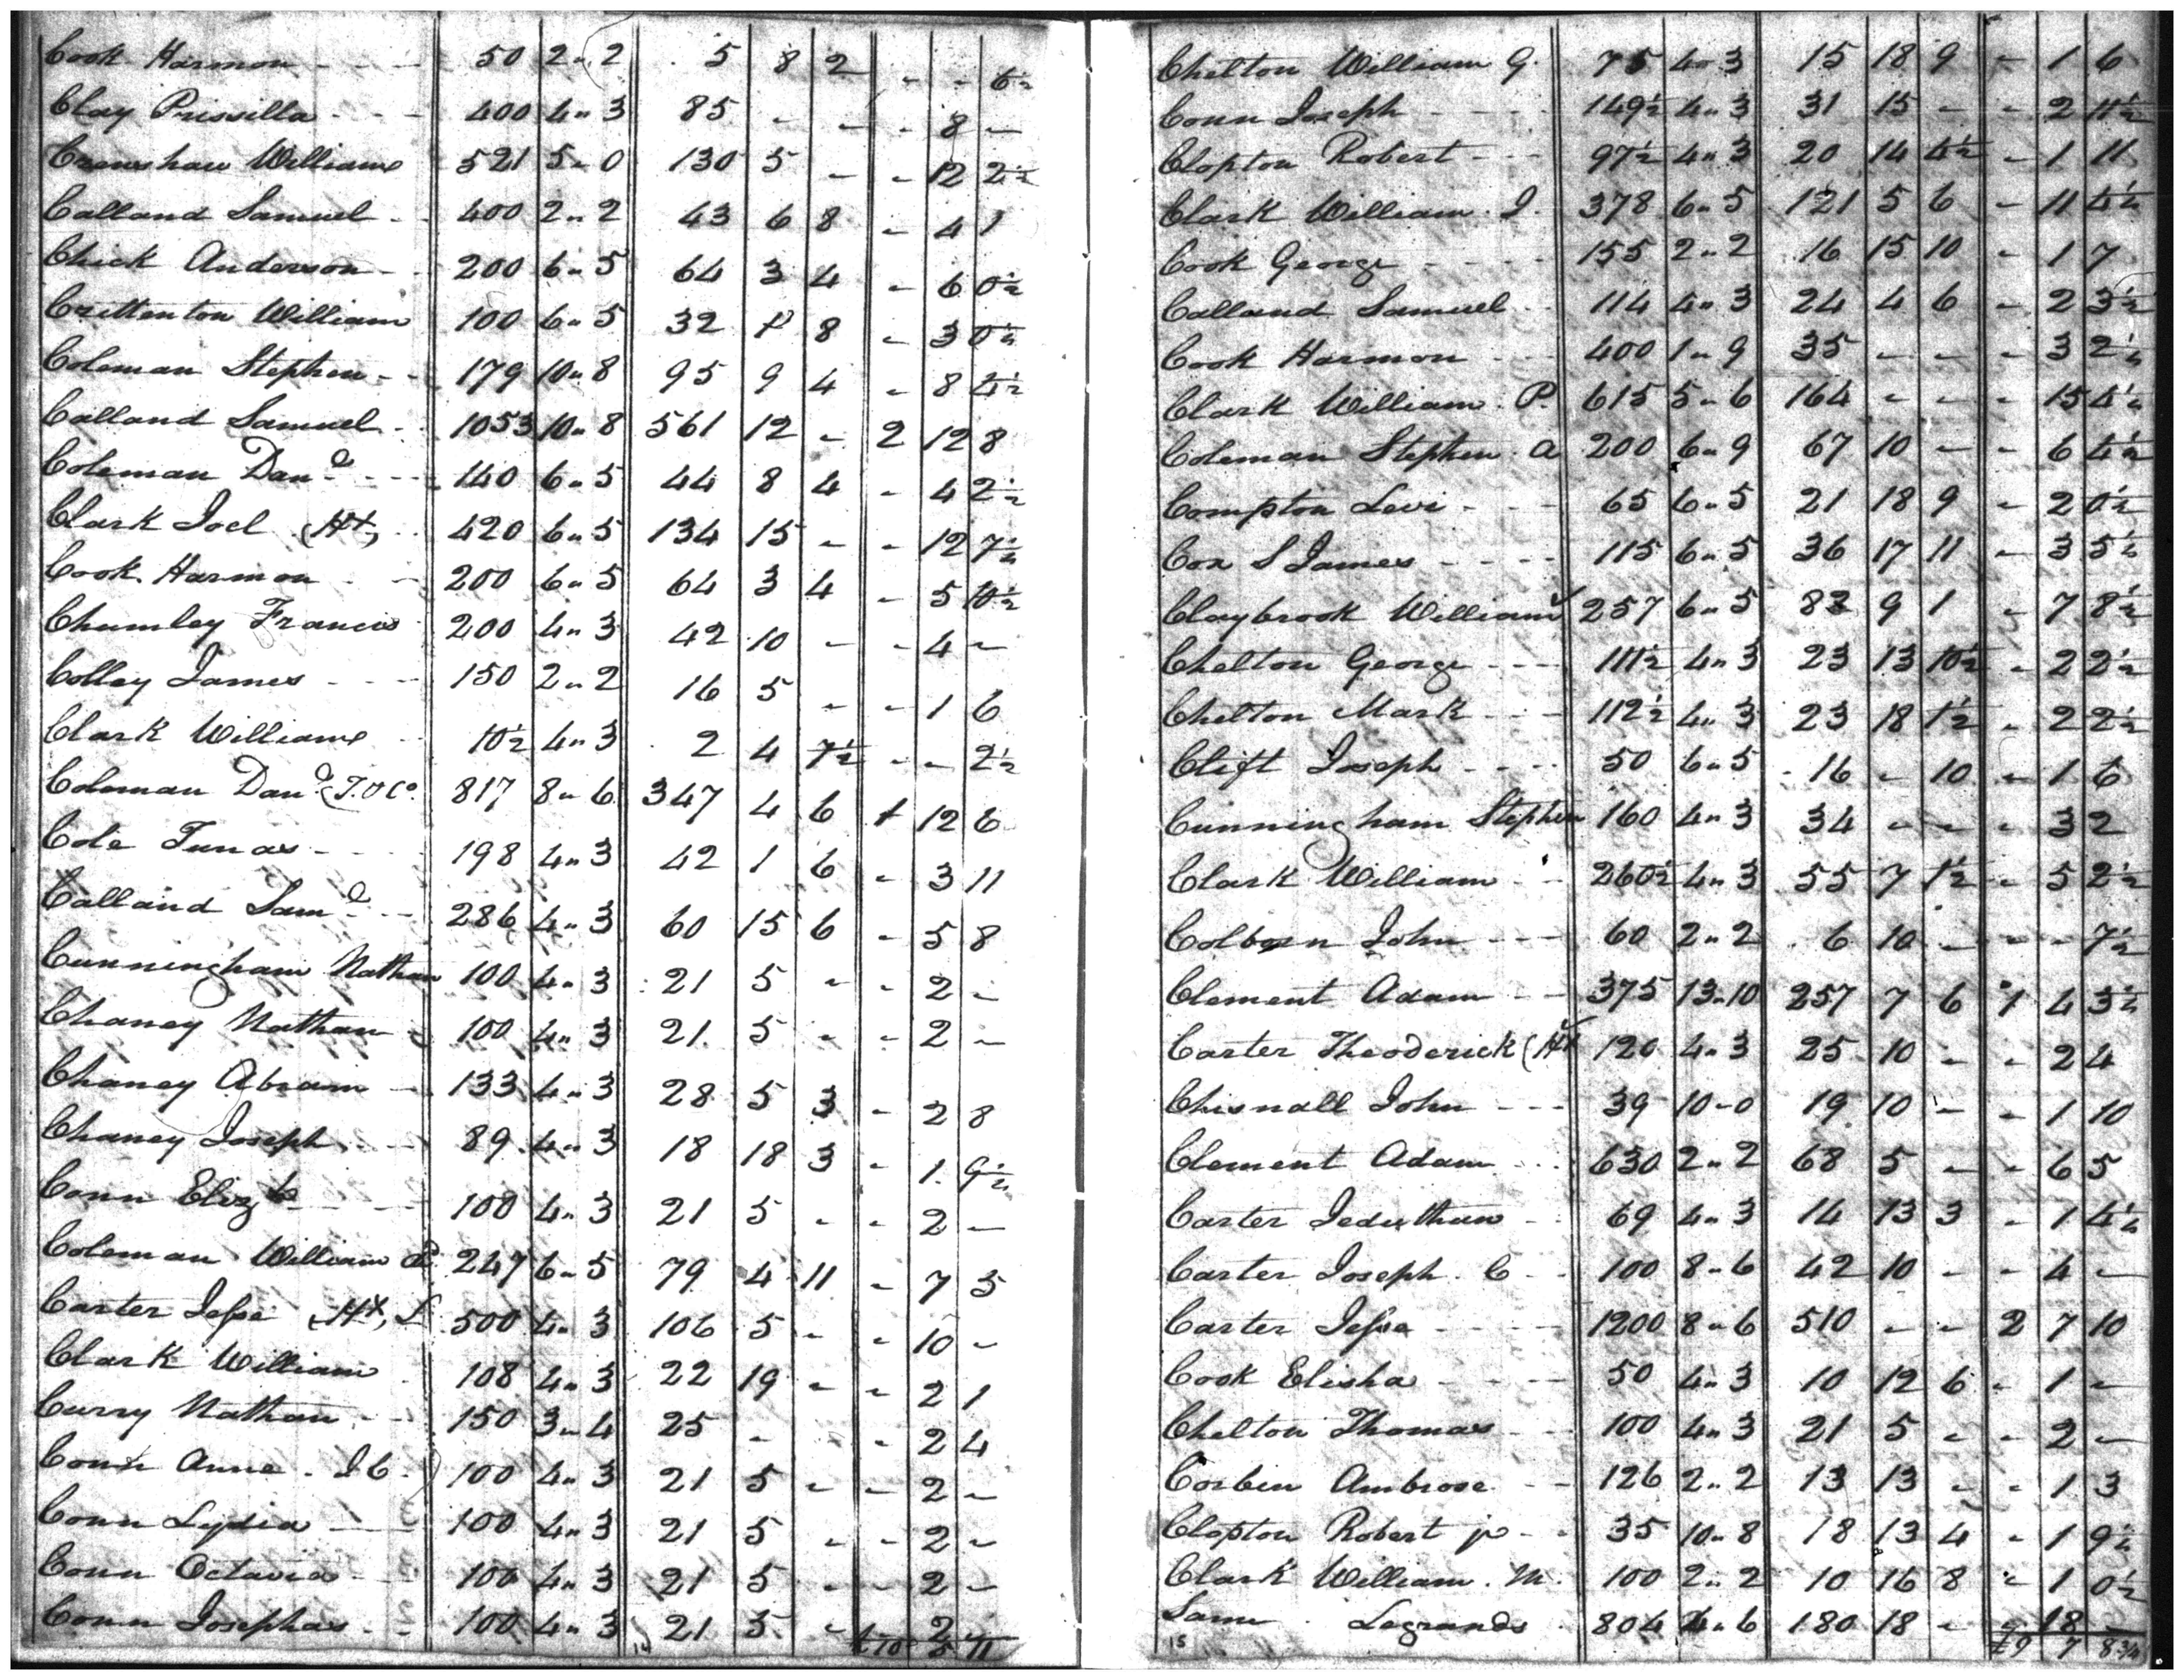 Cook Harmon - - - 50 2 " 2 5 8 2 - - 6½
Clay Prissilla - - - 400 4 " 3 85 - - - 8 -
Crenshaw William 521 5 " 0 130 5 - - 12 2½
Calland Samuel - - 400 2 " 2 43 6 8 - 4 1
Chick Anderson - - 200 6 " 5 64 3 4 - 6 0½
Crittenton William 100 6 " 5 32 1 8 - 3 0½
Coleman Stephen - - 179 10 " 8 95 9 4 - 8 4½
Calland Samuel - 1053 10 " 8 561 12 - 2 12 8
Coleman Danl - - - 140 6 " 5 44 8 4 - 4 2½
Clark Joel (Hx) - - 420 6 " 5 134 15 - - 12 7½
Cook Harmon - - 200 6 " 5 64 3 4 - 5 10½
Chumley Francis 200 4 " 3 42 10 - - 4 -
Colley James - - - 150 2 " 2 16 5 - - 1 6
Clark William 10½ 4 " 3 2 4 7½ - - 2½
Coleman Danl (T.O Co. 817 8 " 6 347 4 6 1 12 6
Cole Tunas - - - 198 4 " 3 42 1 6 - 3 11
Calland Saml - - 286 4 " 3 60 15 6 - 5 8
Cunningham Nathan 100 4 " 3 21 5 - - 2 -
Chaney Nathan - 100 4 " 3 21 5 - - 2 -
Chaney Abram - 133 4 " 3 28 5 3 - 2 8
Chaney Joseph - - 89 4 " 3 18 18 3 - 1 9½
Conn Elizth - - - 100 4 " 3 21 5 - - 2 -
Coleman William P. 247 6 " 5 79 4 11 - 7 5
Carter Jesse (Hx) L 500 4 " 3 106 5 - - 10 -
Clark William 108 4 " 3 22 19 - - 2 1
Curry Nathan - - 150 3 " 4 25 - - - 2 4
Conn Anne - J C - ) 100 4 " 3 21 5 - - 2 -
Conn Lydia - - 100 4 " 3 21 5 - - 2 -
Conn Octavia - - 100 4 " 3 21 5 - - 2 -
Conn Josephas - - 100 4 " 3 21 5 - - 2 -
14 £10 5 11
Chelton William G. 75 4 " 3 15 18 9 - 1 6
Conn Joseph - - - 149½ 4 " 3 31 15 - - 2 11½
Clopton Robert - - - 97½ 4 " 3 20 14 4½ - 1 11
Clark William J. 378 6 " 5 121 5 6 - 11 4½
Cook George - - - - 155 2 " 2 16 15 10 - 1 7
Calland Samuel - - 114 4 " 3 24 4 6 - 2 3½
Cook Harmon - - - 400 1 " 9 35 - - - 3 2½
Clark William P. 615 5 " 6 164 - - - 15 4½
Coleman Stephen A 200 6 " 9 67 10 - - 6 4½
Compton Levi - - - 65 6 " 5 21 18 9 - 2 0½
Cox S James - - - 115 6 " 5 36 17 11 - 3 5½
Claybrook William 257 6 " 5 82 9 1 - 7 8½
Chelton George - - - 111½ 4 " 3 23 13 10½ - 2 2½
Chelton Mark - - - 112½ 4 " 3 23 18 1½ - 2 2½
Clift Joseph - - - 50 6 " 5 16 - 10 - 1 6
Cunningham Stephen 160 4 " 3 34 - - - 3 2
Clark William - - 260½ 4 " 3 55 7 1½ - 5 2½
Colbern John - - - 60 2 " 2 6 10 - - - 7½
Clement Adam - - 375 13 " 10 257 7 6 1 4 3½
Carter Theoderick (Hx 120 4 " 3 25 10 - - 2 4
Chisnall John - - - 39 10 - 0 19 10 - - 1 10
Clement Adam - - - 630 2 " 2 68 5 - - 6 5
Carter Jeduthun - - 69 4 " 3 14 13 3 - 1 4½
Carter Joseph C - - 100 8 - 6 42 10 - - 4 -
Carter Jesse - - - - 1200 8 " 6 510 - - 2 7 10
Cook Elisha - - - - 50 4 " 3 10 12 6 - 1 -
Chelton Thomas - - 100 4 " 3 21 5 - - 2 -
Corbin Ambrose - - 126 2 " 2 13 13 - - 1 3
Clopton Robert jr - - 35 10 " 8 18 13 4 - 1 9½
Clark William M. 100 2 " 2 10 16 8 - 1 0½
Same Legrands 804 4 " 6 180 18 - - 18 -
15 £9 7 8¾